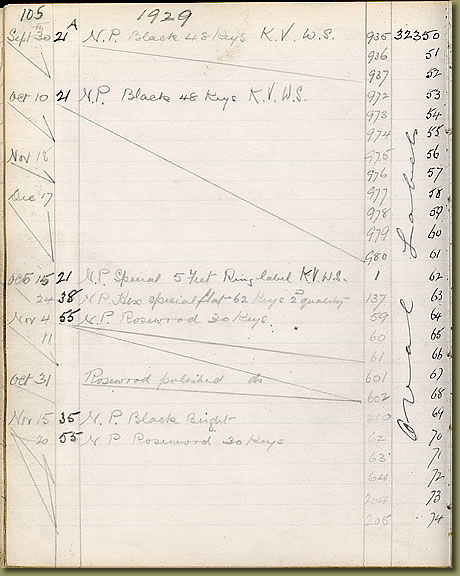 105 A 1929
Sept 30 21 N.P. Black 48 Keys K.V. W.S. 935 32350
936 51
937 52
Oct 10 21 N.P. Black 48 Keys K.V.W.S. 972 53
973 54
974 55
Nov 18 975 56
976 57
Dec 17 977 58
978 59
979 60
980 61
Oct 15 21 N.P. Special 5 Feet Ring label K.V.W.S. 1 62
24 38 N.P. Hex special flat 62 Keys 2 quality 137 63
Nov 4 55 N.P. Rosewood 30 Keys 59 64
11 60 65
61 66
Oct 31 Rosewood polished do 601 67
602 68
Nov 15 35 N.P. Black Bright 210 69
20 55 N.P. Rosewood 30 Keys 62 70
63 71
64 72
204 73
205 74
Oval Labels